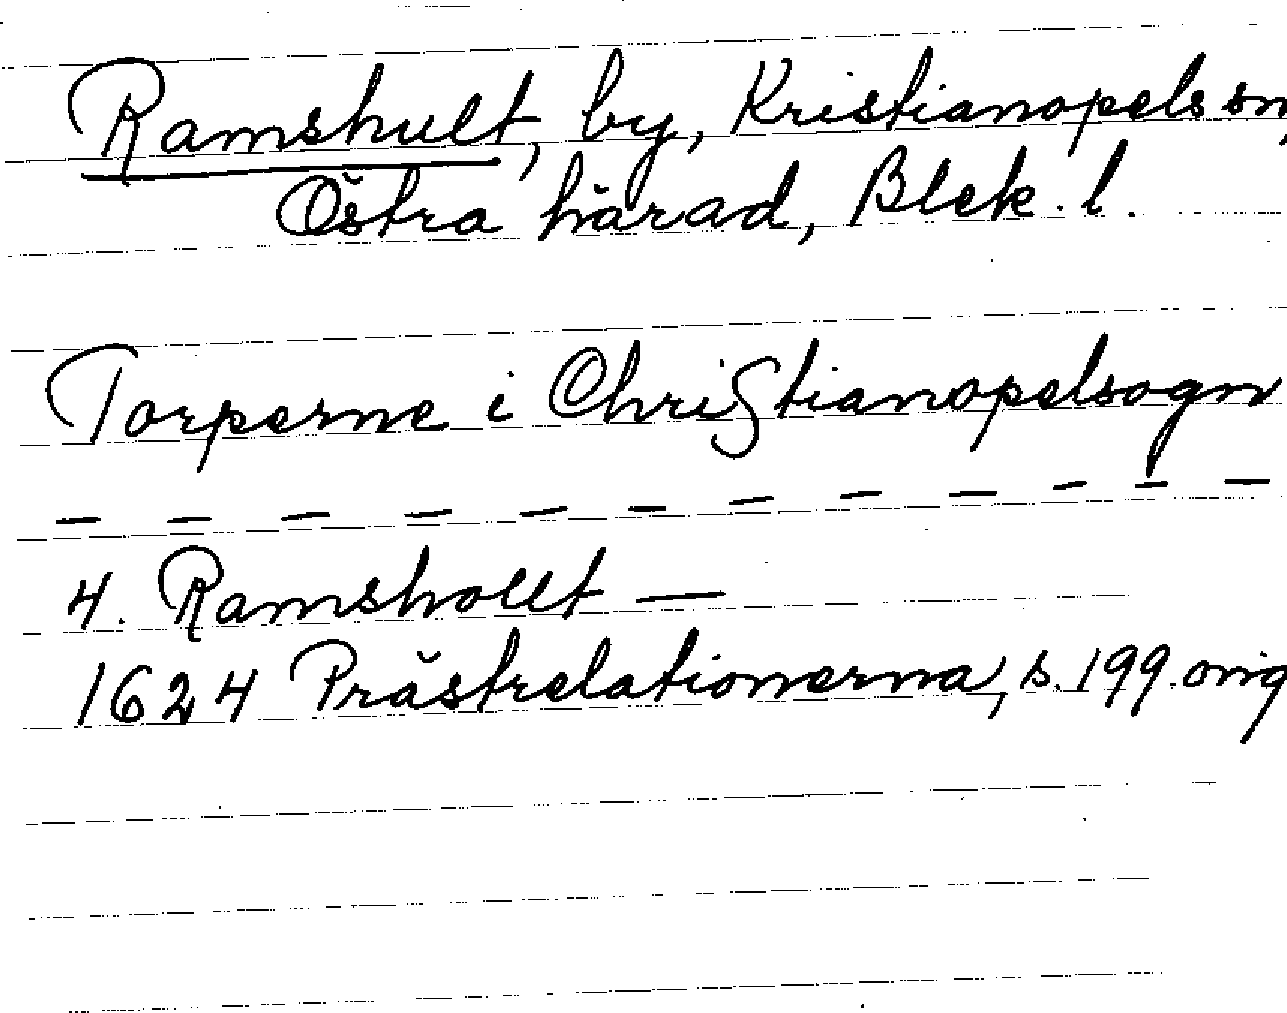 Ramshult, by, Kristianopels sn,
Östra härad, Blek. l.
Torperne i Christianopelsogn
— — — — — — — — — — —
4. Ramshollt —
1624 Prästrelationerna, s. 199. orig